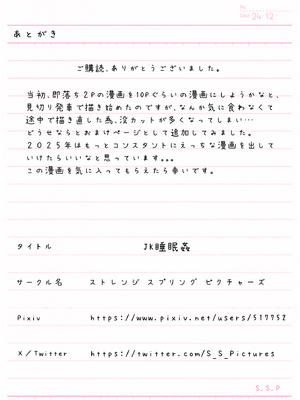 No.
Date 24・12・
あとがき
ご購読、ありがとうございました。
当初、即落ち2Pの漫画を10Pぐらいの漫画にしようかなと、
見切り発車で描き始めたのですが、なんか気に食わなくて
途中で描き直した為、没カットが多くなってしまい…
どうせならとおまけページとして追加してみました。
2025年はもっとコンスタントにえっちな漫画を出して
いけたらいいなと思っています。。。
この漫画を気に入ってもらえたら幸いです。
タイトル JK睡眠姦
サークル名 ストレンジ スプリング ピクチャーズ
Pixiv https://www.pixiv.net/users/517752
X/Twitter https://twitter.com/S_S_Pictures
S.S.P